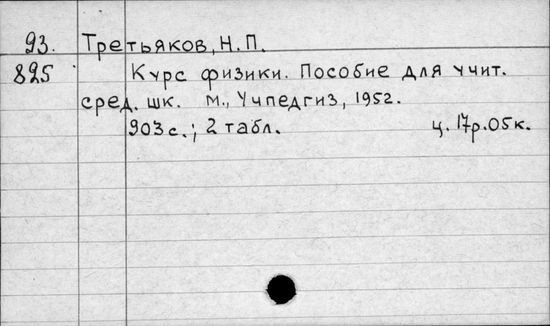 93. Третьяков, Н.П.
825 Курс физики. Пособие для учит.
сред. шк. М., Учпедгиз, 1952.
903 с.; 2 табл. ц. 17р.05к.